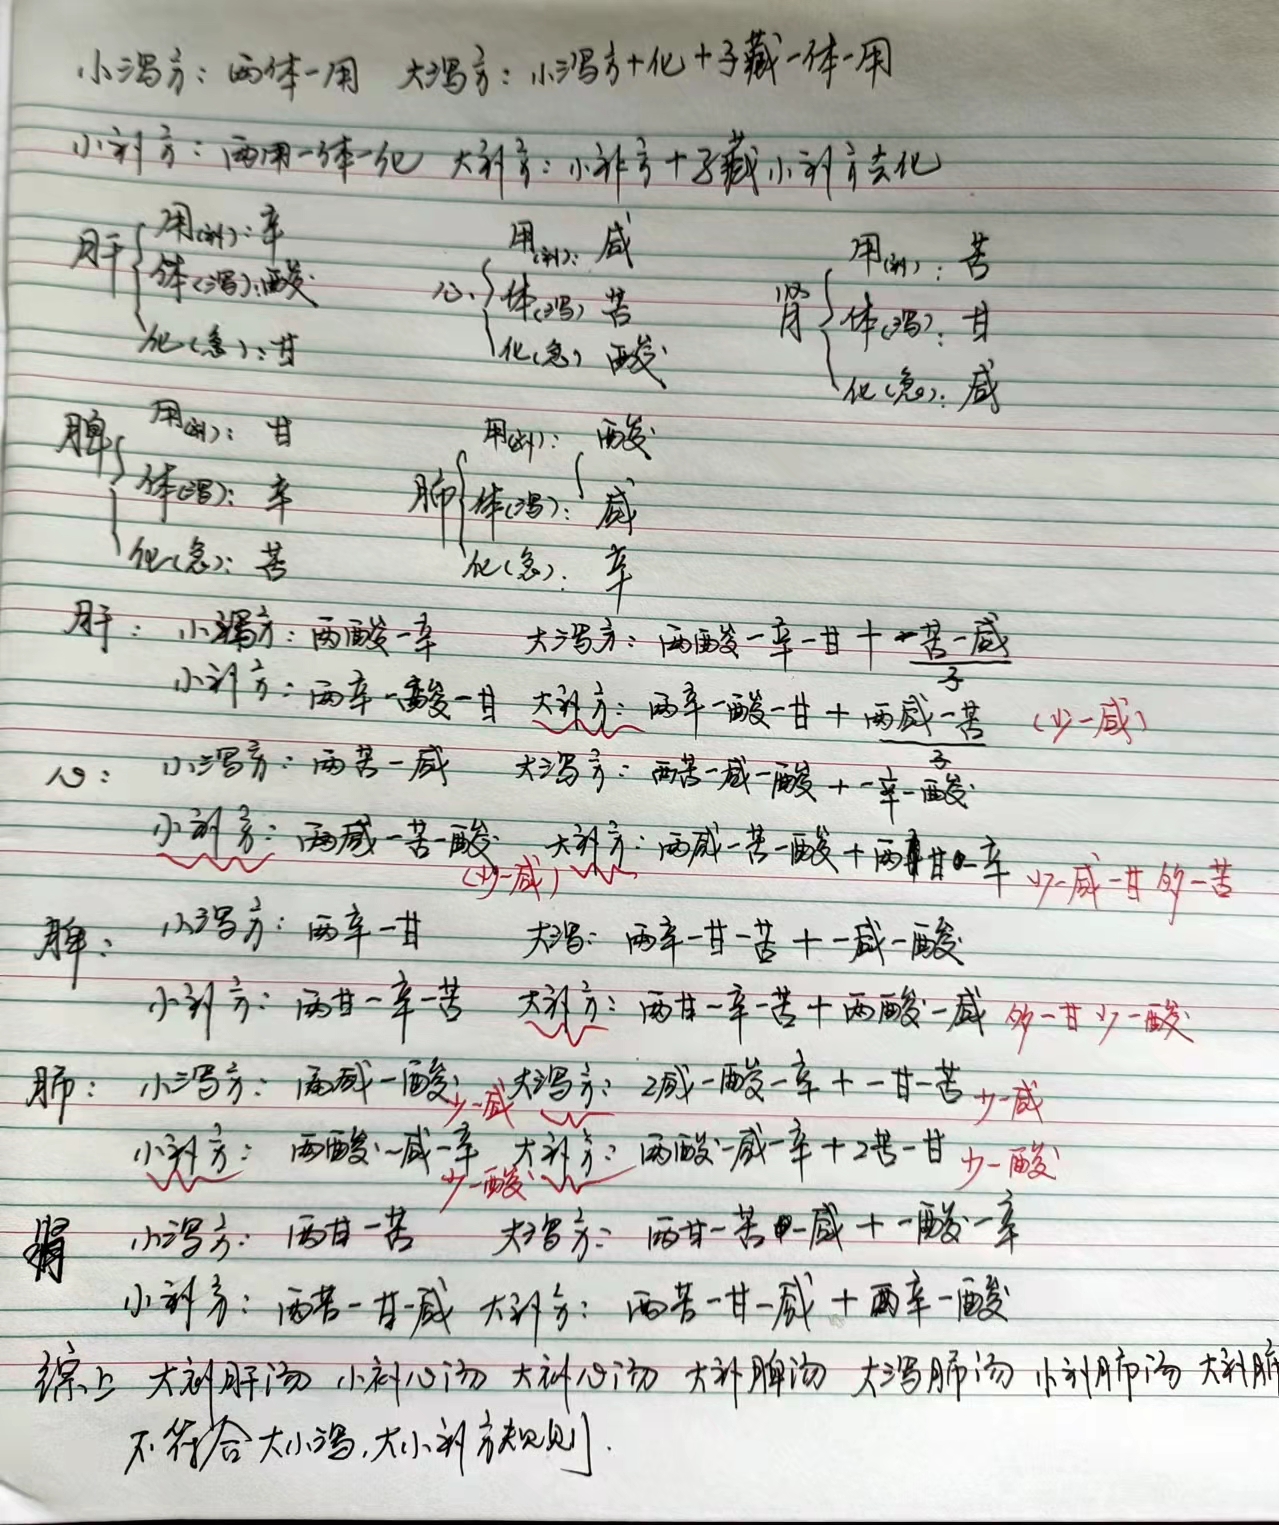 小泻方：两体一用 大泻方：小泻方+化+子藏一体一用
小补方：两用一体一化 大补方：小补方+子藏小补方去化
肝 用(补)：辛 体(泻)：酸 化(急)：甘
心 用(补)：咸 体(泻) 苦 化(急) 酸
肾 用(补)：苦 体(泻)：甘 化(急)：咸
脾 用(补)：甘 体(泻)：辛 化(急)：苦
肺 用(补)：酸 体(泻)：咸 化(急)：辛
肝：小泻方：两酸一辛 大泻方：两酸一辛一甘+一苦一咸 子
小补方：两辛一酸一甘 大补方：两辛一酸一甘+两咸一苦 子 (少一咸)
心：小泻方：两苦一咸 大泻方：两苦一咸一酸+一辛一酸
小补方：两咸一苦一酸 (少一咸) 大补方：两咸一苦一酸+两甘一辛 少一咸一甘多一苦
脾：小泻方：两辛一甘 大泻：两辛一甘一苦+一咸一酸
小补方：两甘一辛一苦 大补方：两甘一辛一苦+两酸一咸 多一甘少一酸
肺：小泻方：两咸一酸 少一咸 大泻方：2咸一酸一辛+一甘一苦 少一咸
小补方：两酸一咸一辛 少一酸 大补方：两酸一咸一辛+2苦一甘 少一酸
肾 小泻方：两甘一苦 大泻方：两甘一苦一咸+一酸一辛
小补方：两苦一甘一咸 大补方：两苦一甘一咸+两辛一酸
综上 大补肝汤 小补心汤 大补心汤 大补脾汤 大泻肺汤 小补肺汤 大补肺
不符合大小泻,大小补方规则.